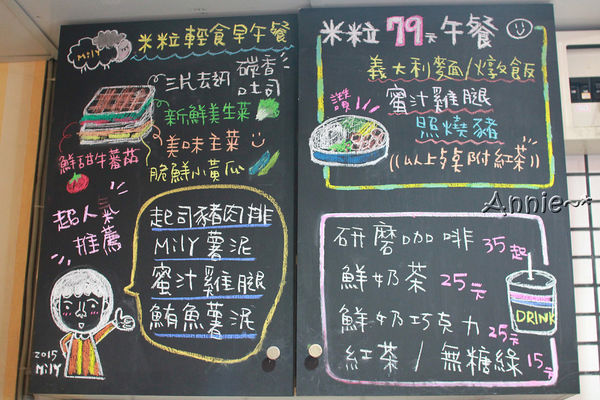 Mily
米粒輕食早午餐
三片去奶
碳香
吐司
新鮮美生菜
美味主菜
鮮甜牛蕃茄
脆鮮小黃瓜
超人氣
推薦
起司豬肉排
Mily薯泥
蜜汁雞腿
鮪魚薯泥
2015
Mily
米粒79元午餐
義大利麵/燉飯
讚!
蜜汁雞腿
照燒豬
((以上套餐附紅茶))
Annie~*
研磨咖啡 35起
鮮奶茶 25元
鮮奶巧克力 25元
紅茶/無糖綠 15元
DRINK